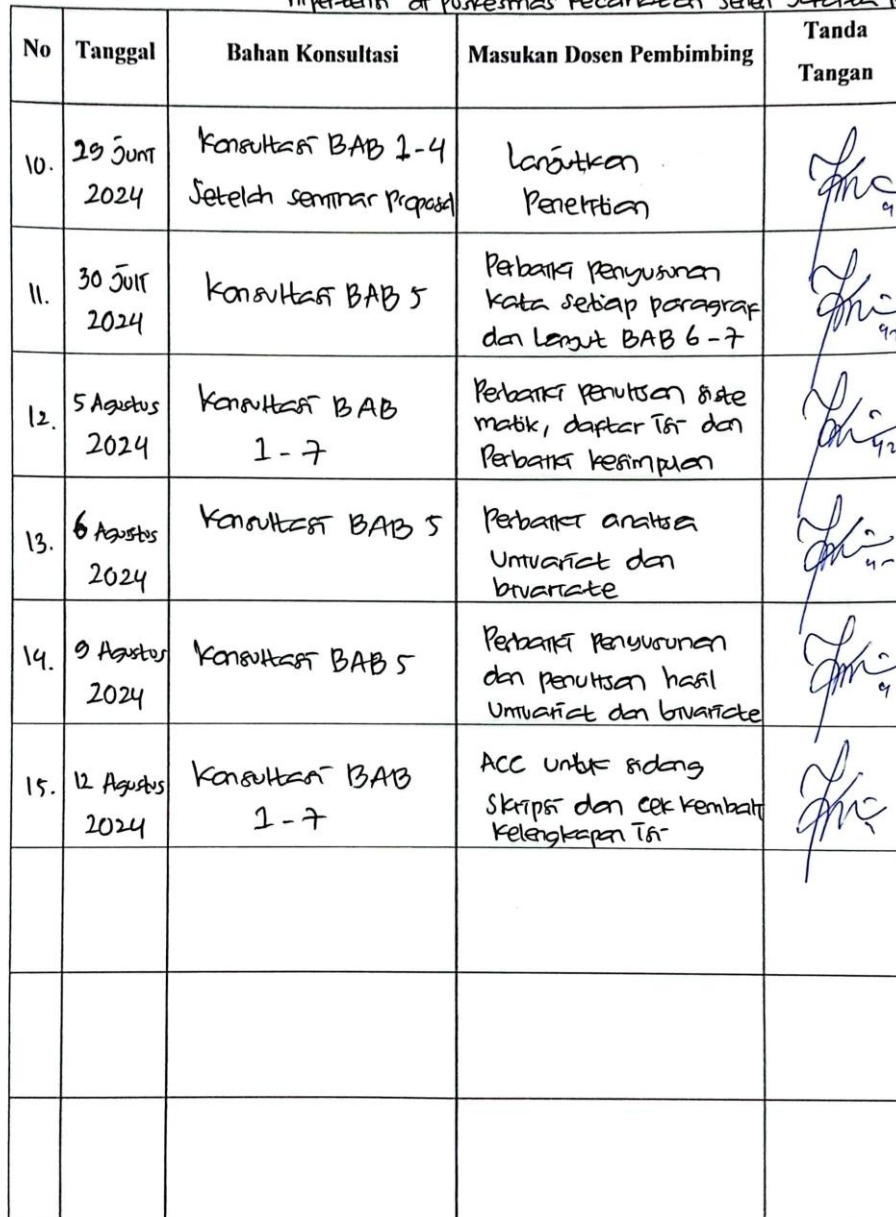 di Puskesmas
No Tanggal Bahan Konsultasi Masukan Dosen Pembimbing Tanda
Tangan
10. 29 Juni Konsultasi BAB 1-4 Lanjutkan
2024 Setelah seminar Proposal Penelitian
11. 30 Juli Konsultasi BAB 5 Perbaiki penyusunan
2024 kata setiap paragraf
dan Lanjut BAB 6-7
12. 5 Agustus Konsultasi BAB Perbaiki penulisan siste
2024 1-7 matik, daftar isi dan
Perbaiki kesimpulan
13. 6 Agustus Konsultasi BAB 5 Perbaiki analisa
2024 Univariat dan
bivariate
14. 9 Agustus Konsultasi BAB 5 Perbaiki Penyusunan
2024 dan penulisan hasil
Univariat dan bivariate
15. 12 Agustus Konsultasi BAB ACC untuk sidang
2024 1-7 Skripsi dan cek kembali
kelengkapan isi